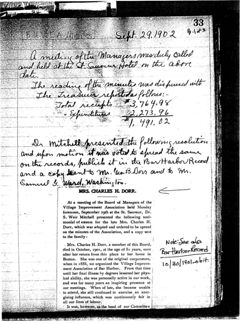 33
Sept. 29, 1902
A meeting of the Managers was duly called
and held at the St. Sauveur Hotel on the above
date.
The reading of the minutes was dispensed with
The Treasurer reported as follows:
Total receipts $3,764.98
" Expenditures 2,273.96
1,491.02
Dr Mitchell presented the following resolution
and upon motion it was voted to spread the same
on the records, publish it in the Bar Harbor Record
and a copy sent to Mr. Geo. B. Dorr and to Mr.
Samuel G. Ward, Washington.
MRS. CHARLES H. DORR.
At a meeting of the Board of Managers of the
Village Improvement Association held Monday
forenoon, September 29th at the St. Sauveur, Dr.
S. Weir Mitchell presented the following testi-
monial of esteem for the late Mrs. Charles H.
Dorr, which was adopted and ordered to be spread
on the minutes of the Association, and a copy sent
to the family:
Mrs. Charles H. Dorr, a member of this Board,
died in October, 1901, at the age of 81 years, soon
after her return from this place to her home in
Boston. She was one of the original corporators,
who in 1881, organized the Village Improvement
Association of Bar Harbor. From that time
until her final illness by degrees lessened her phys-
ical ability, she was personally active in our work,
and was for many years an inspiring presence at
our meetings. When of late, she became unable
to attend, she still continued to exercise an ener-
gizing influence, which was continuously felt in
all our lines of labour.
It was, however, as the head of our Committee
Note: See also
Bar Harbor Record